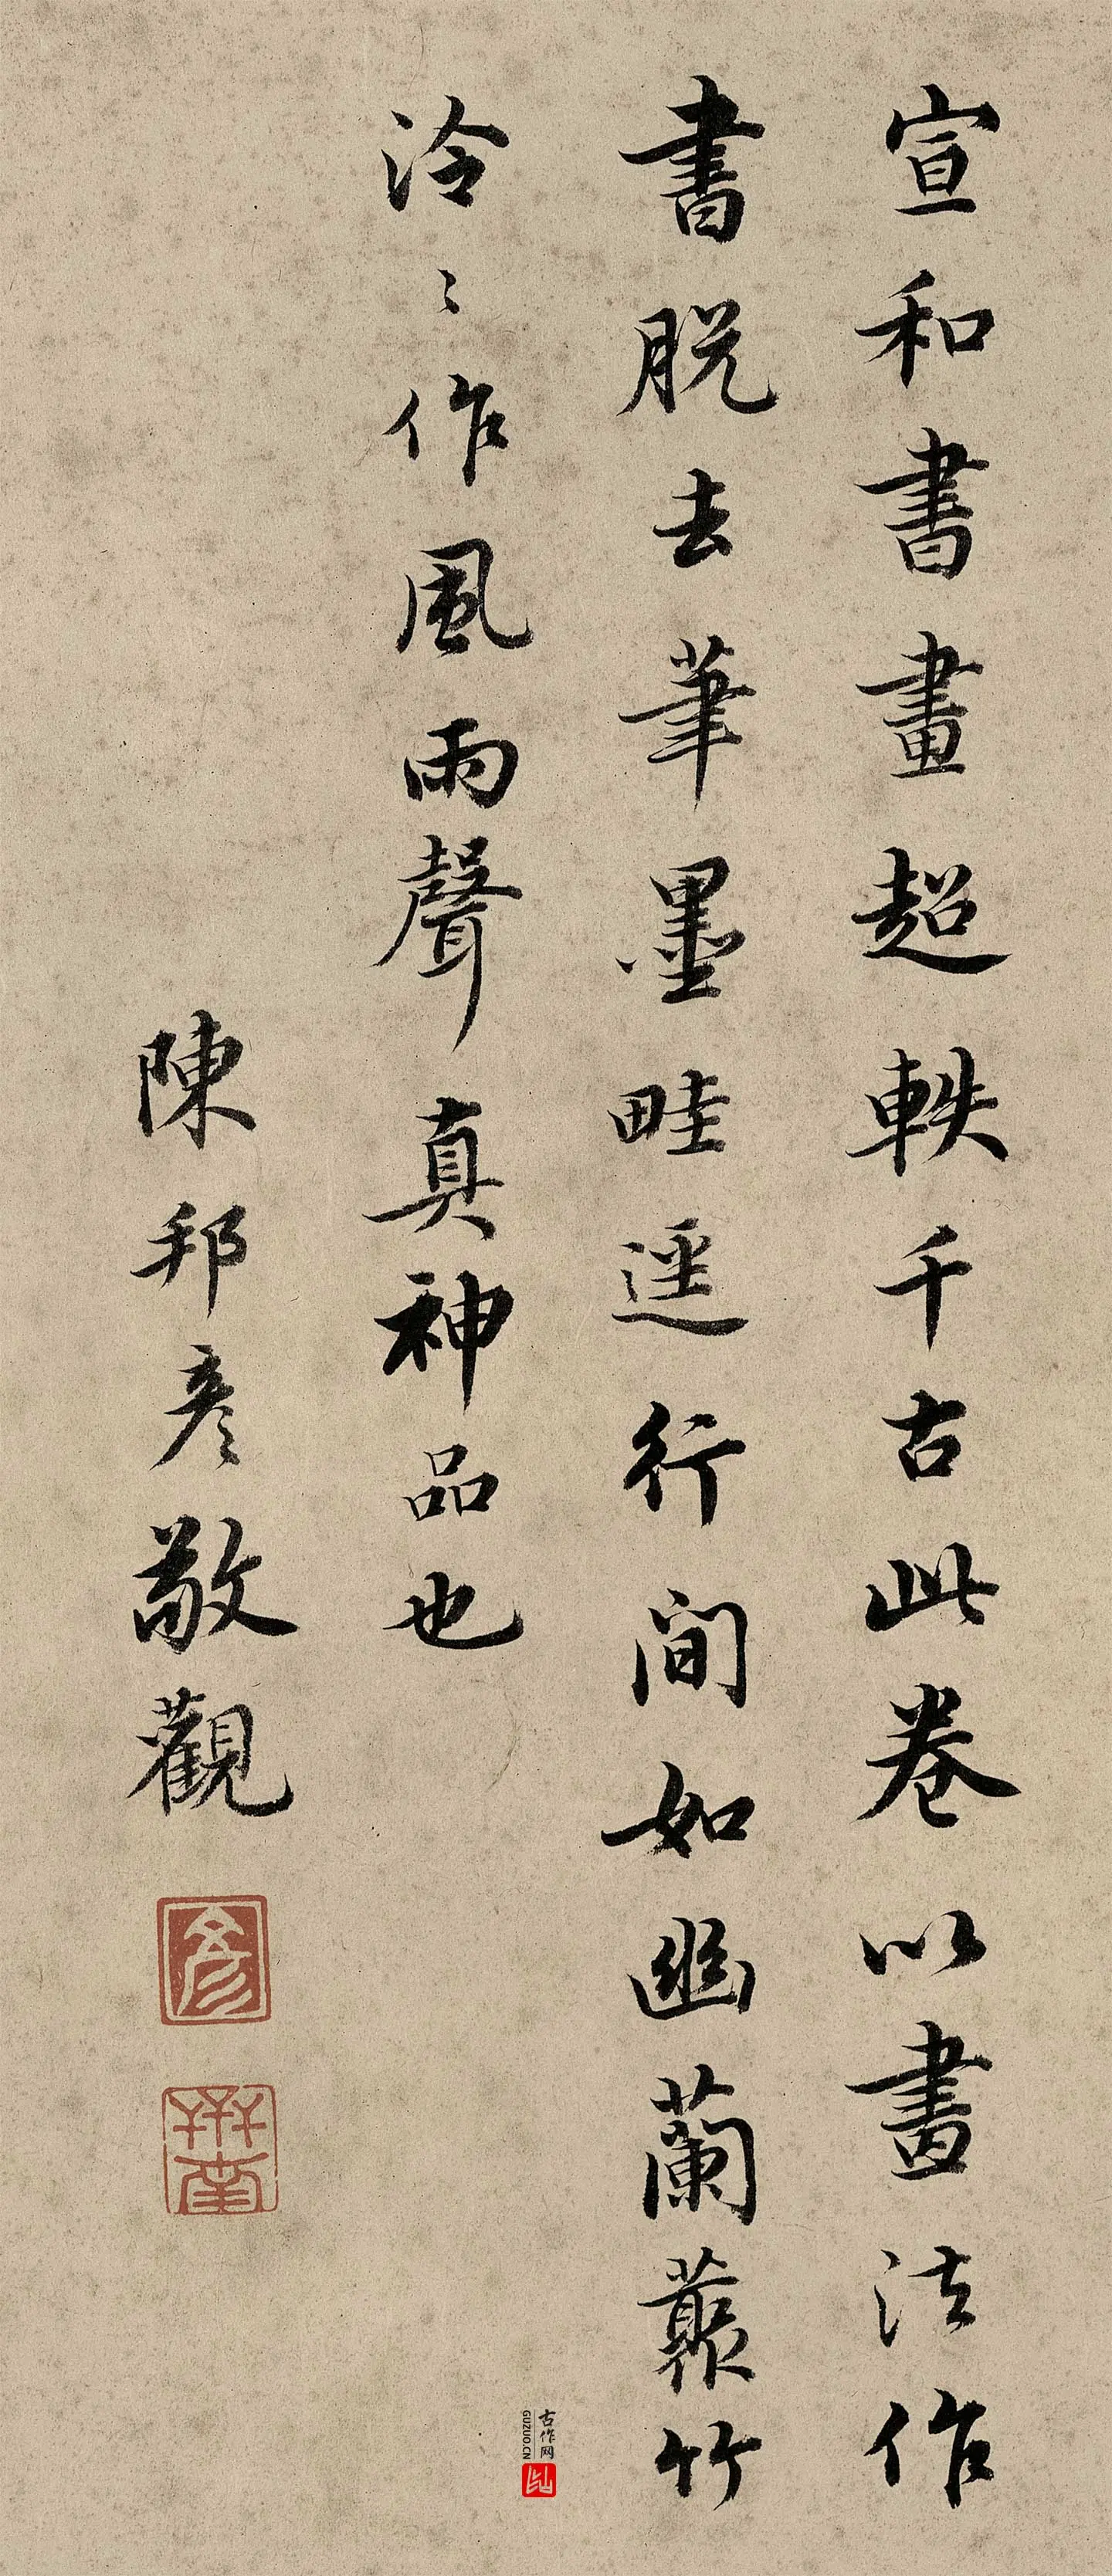 宣和書畫超軼千古此卷以畫法作
書脫去筆墨畦逕行間如幽蘭叢竹
泠〻作風雨聲真神品也
陳邦彦敬觀
彦
古作网
GUZUO.CN